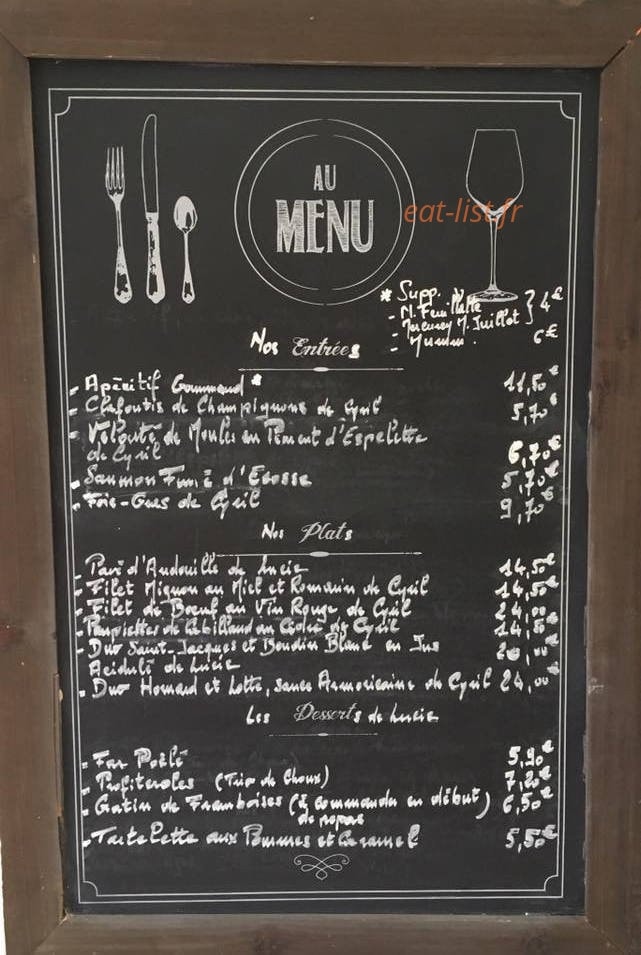 AU
MENU
eat-list.fr
* Supp.
- M. Feuillatte } 4€
- Mercurey M. Juillot
- 6€
Nos Entrées
- Apéritif Gourmand * 11,50€
- Clafoutis de Champignons de Cyril 5,70€
- Velouté de Moules au Piment d'Espelette
de Cyril 6,70€
- Saumon Fumé d'Ecosse 5,70€
- Foie-Gras de Cyril 9,70€
Nos Plats
- Pavé d'Andouille de Lucie 14,50€
- Filet Mignon au Miel et Romarin de Cyril 14,50€
- Filet de Bœuf au Vin Rouge de Cyril 24,00€
- Paupiettes de Cabillaud au Cidre de Cyril 14,50€
- Duo Saint-Jacques et Boudin Blanc en Jus 20,00€
Acidulé de Lucie
- Duo Homard et Lotte, sauce Armoricaine de Cyril 24,00€
Les Desserts de Lucie
- Far Poêlé 5,90€
- Profiteroles (Trio de Choux) 7,20€
- Gratin de Framboises (à commander en début) 6,50€
de repas
- Tartelette aux Pommes et Caramel 5,50€